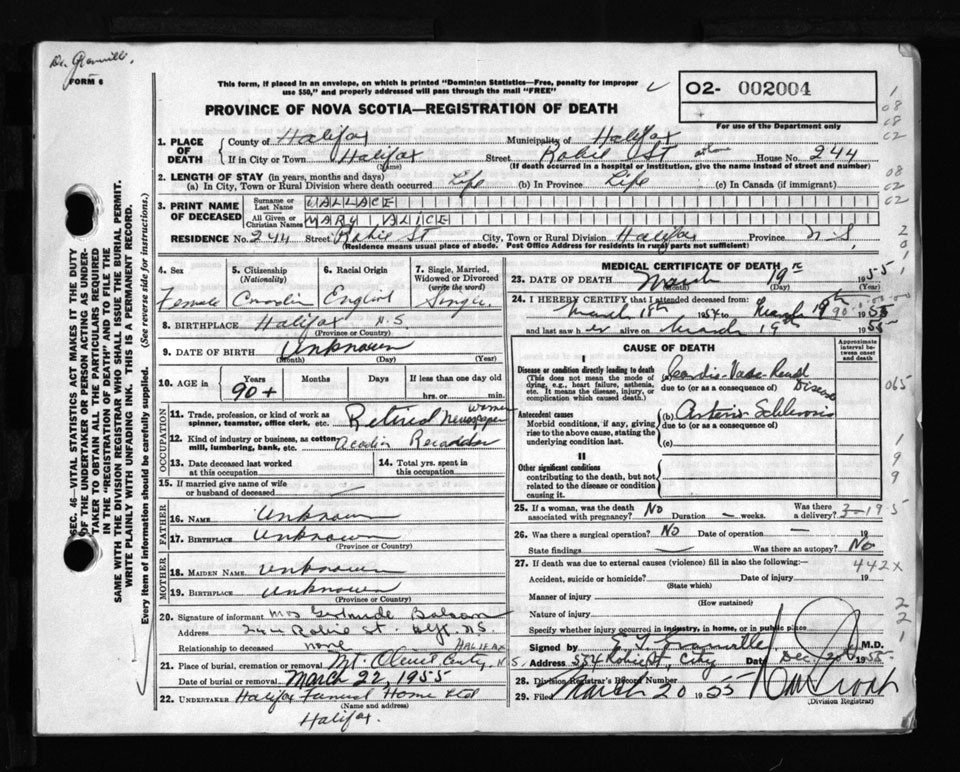 Dr. Granville.
FORM 6
This form, if placed in an envelope, on which is printed "Dominion Statistics—Free, penalty for improper
use $50," and properly addressed will pass through the mail "FREE"
02- 002004
PROVINCE OF NOVA SCOTIA—REGISTRATION OF DEATH
For use of the Department only
1. PLACE OF DEATH
County of Halifax Municipality of Halifax
If in City or Town Halifax (Name) Street Robie St House No. 244
(If death occurred in hospital or institution, give the name instead of street and number)
2. LENGTH OF STAY (in years, months and days)
(a) In City, Town or Rural Division where death occurred Life (b) In Province Life (c) In Canada (if immigrant)
3. PRINT NAME OF DECEASED
Surname or Last Name WALLACE
All Given or Christian Names MARY ALICE
RESIDENCE No. 244 Street Robie St City, Town or Rural Division Halifax Province N S
(Residence means usual place of abode. Post Office Address for residents in rural parts not sufficient)
4. Sex Female
5. Citizenship (Nationality)
6. Racial Origin English
7. Single, Married, Widowed or Divorced (write the word) Single
8. BIRTHPLACE Halifax N.S.
(Province or Country)
9. DATE OF BIRTH Unknown
(Month) (Day) (Year)
10. AGE in Years 90+ Months Days If less than one day old
hrs. or min.
OCCUPATION
11. Trade, profession, or kind of work as spinner, teamster, office clerk, etc. Retired Newspaper woman
12. Kind of industry or business, as cotton mill, lumbering, bank, etc. Acadian Recorder
13. Date deceased last worked at this occupation
14. Total yrs. spent in this occupation
15. If married give name of wife or husband of deceased —
FATHER
16. NAME Unknown
17. BIRTHPLACE Unknown
(Province or Country)
MOTHER
18. MAIDEN NAME Unknown
19. BIRTHPLACE Unknown
(Province or Country)
20. Signature of informant Mrs Gertrude
Address 244 Robie St. Hlfx. N.S.
Relationship to deceased none
21. Place of burial, cremation or removal Mt. Olivet HALIFAX N.S.
Date of burial or removal March 22, 1955
22. UNDERTAKER Halifax Funeral Home Ltd
(Name and address)
Halifax.
MEDICAL CERTIFICATE OF DEATH
23. DATE OF DEATH March 19 1955
(Day) (Year)
24. I HEREBY CERTIFY that I attended deceased from:
March 18th 1954 to March 19th 1955
and last saw her alive on March 19th 1955
CAUSE OF DEATH
Approximate interval between onset and death
I
Disease or condition directly leading to death
(This does not mean the mode of dying, e.g., heart failure, asthenia, etc. It means the disease, injury, or complication which caused death.)
Cardio-Vasc-Renal Disease
due to (or as a consequence of)
Antecedent causes
Morbid conditions, if any, giving rise to the above cause, stating the underlying condition last.
(b) Arterio Schlerosis
due to (or as a consequence of)
(c)
II
Other significant conditions
contributing to the death, but not related to the disease or condition causing it.
25. If a woman, was the death associated with pregnancy? No Duration — weeks. Was there a delivery?
26. Was there a surgical operation? No Date of operation — 19
State findings — Was there an autopsy? No
27. If death was due to external causes (violence) fill in also the following:— 442X
Accident, suicide or homicide? (State which) Date of injury 19
Manner of injury
(How sustained)
Nature of injury
Specify whether injury occurred in industry, in home, or in public place
Signed by Granville M.D.
Address 554 Robie St, City Date Dec. 20 1955
28. Division Registrar's Record Number
29. Filed March 20 1955
(Division Registrar)
SEC. 46—VITAL STATISTICS ACT MAKES IT THE DUTY
OF THE UNDERTAKER OR PERSON ACTING AS UNDER-
TAKER TO OBTAIN ALL THE PARTICULARS REQUIRED
IN THE "REGISTRATION OF DEATH" AND TO FILE THE
SAME WITH THE DIVISION REGISTRAR WHO SHALL ISSUE THE BURIAL PERMIT.
WRITE PLAINLY WITH UNFADING INK. THIS IS A PERMANENT RECORD.
Every item of information should be carefully supplied. (See reverse side for instructions.)